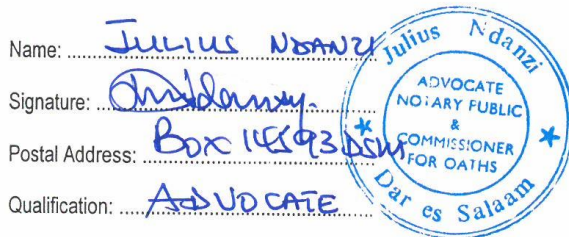 Name: JULIUS NDANZI
Signature:
Postal Address: BOX 14593 DSM
Qualification: ADVOCATE
Julius Ndanzi
ADVOCATE
NOTARY PUBLIC
&
COMMISSIONER
FOR OATHS
Dar es Salaam